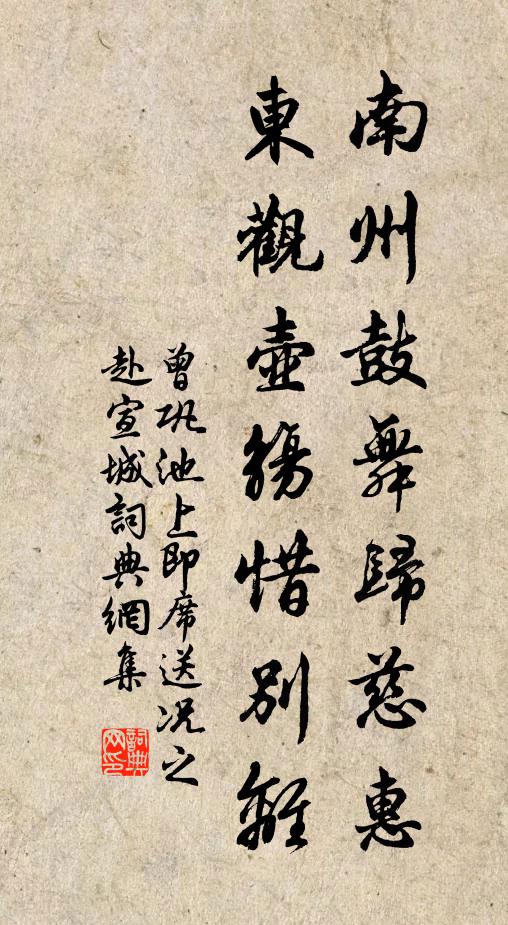 南州鼓舞歸慈惠
東觀壺觴惜別離
曾巩池上即席送况之
赴宣城詞典網集
詞典网印